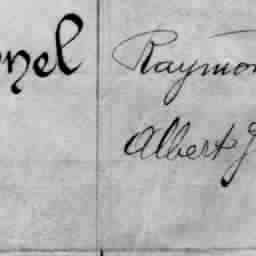 nel Raymon
Albert J